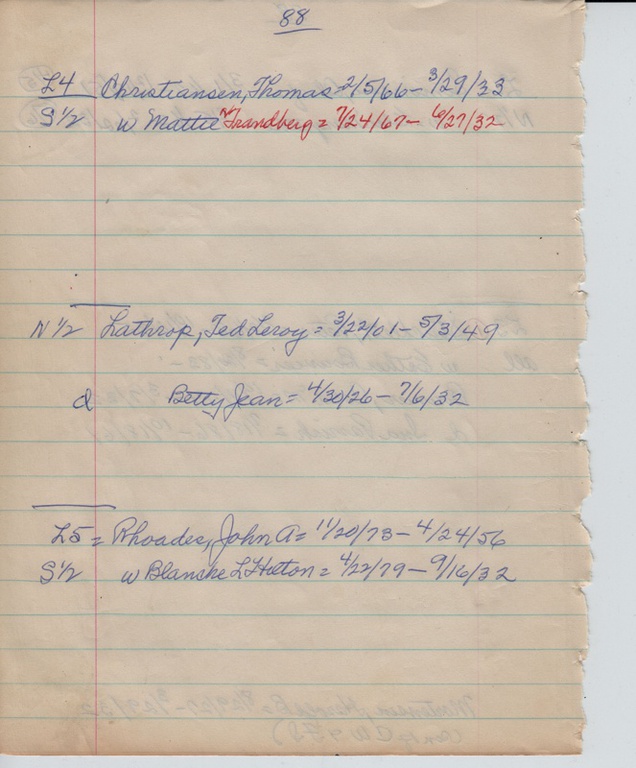 88
L4 Christiansen, Thomas = 2/5/66 - 3/29/33
S 1/2 w Mattie Trandberg = 7/24/67 - 6/27/32
N 1/2 Lathrop, Ted Leroy = 3/22/01 - 5/3/49
d Betty Jean = 4/30/26 - 7/6/32
L5 = Rhoades, John A = 11/20/73 - 4/24/56
S 1/2 w Blanske L = 4/22/79 - 9/16/32